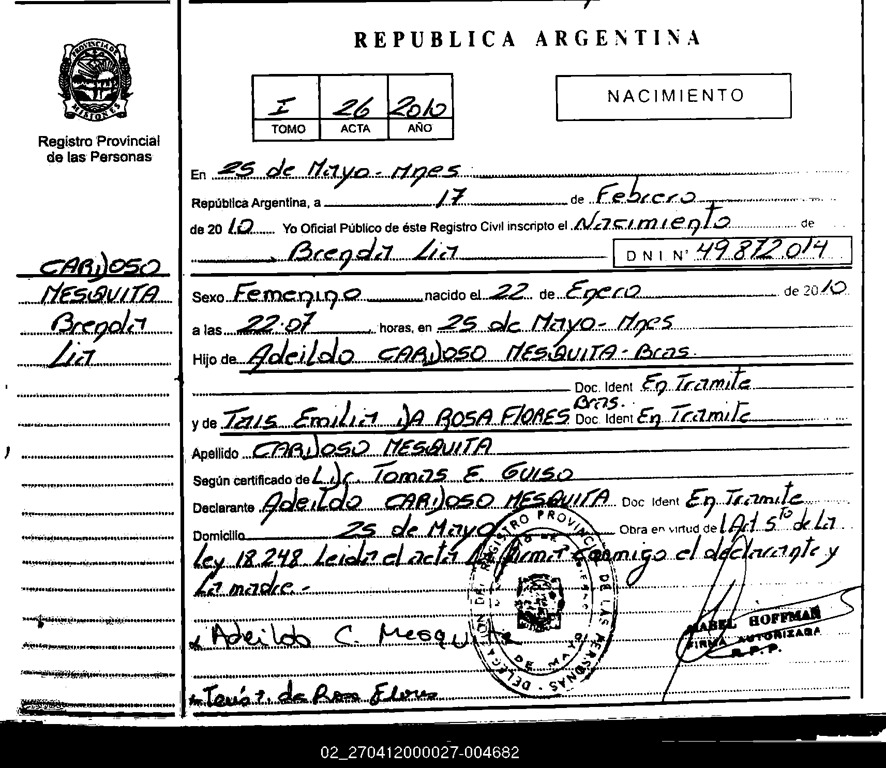 REPUBLICA ARGENTINA
PROVINCIA DE MISIONES
Registro Provincial
de las Personas
I 26 2010
TOMO ACTA AÑO
NACIMIENTO
CARDOSO
MESQUITA
Brenda
Lia
En 25 de Mayo - Mnes
República Argentina, a 17 de Febrero
de 2010 Yo Oficial Público de éste Registro Civil inscripto el Nacimiento de
Brenda Lia DNI Nº 49.872.014
Sexo Femenino nacido el 22 de Enero de 2010
a las 22:07 horas, en 25 de Mayo - Mnes
Hijo de Adeildo CARDOSO MESQUITA - Bras.
Doc. Ident En Tramite
y de Tais Emilia DA ROSA FLORES Bras. Doc. Ident En Tramite
Apellido CARDOSO MESQUITA
Según certificado de Tomas E. GUISO
Declarante Adeildo CARDOSO MESQUITA Doc Ident En Tramite
Domicilio 25 de Mayo Obra en virtud de l Art 5to de La
Ley 18.248 Leida el acta firma conmigo el declarante y
La madre.-
Adeildo C. Mesquita
DELEGACION DEL REGISTRO PROVINCIAL DE LAS PERSONAS
25 DE MAYO
MABEL HOFFMAN
FIRMA AUTORIZADA
R.P.P.
da Rosa Flores
02_270412000027-004682